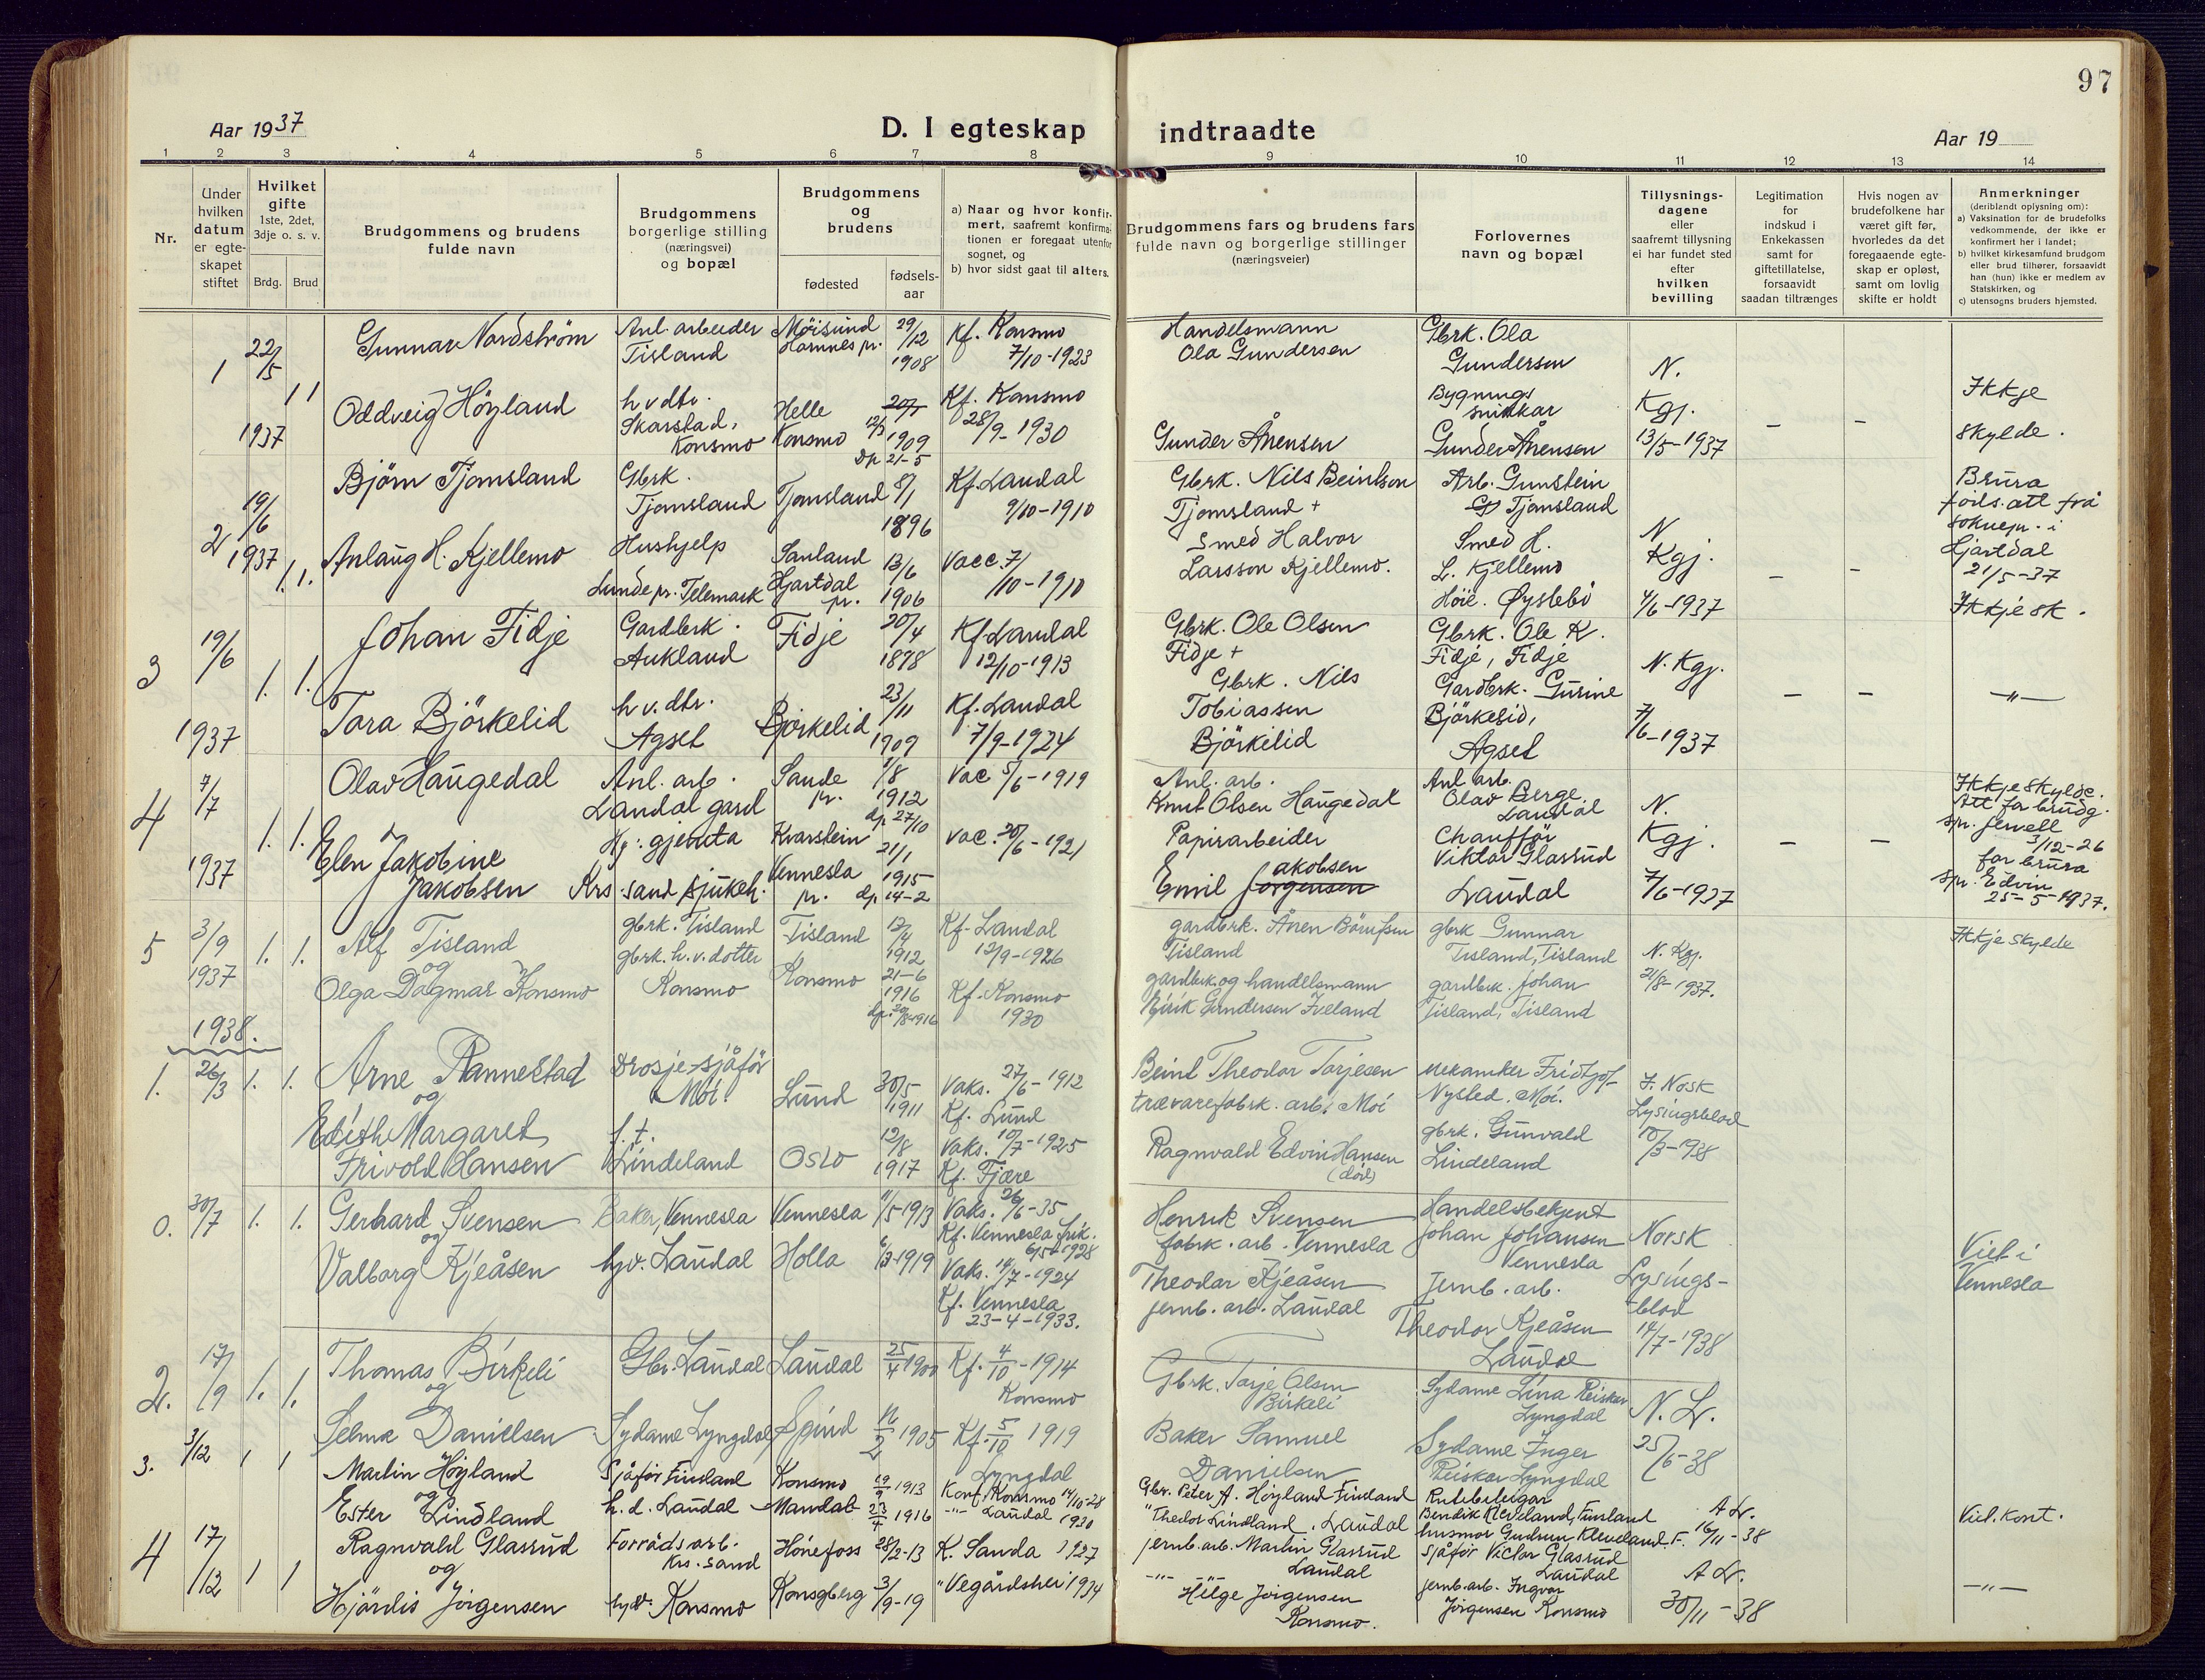 97
Aar 1937
D. I egteskap
indtraadte
Aar 19
1 2 3 4 5 6 7 8 9 10 11 12 13 14
Nr.
Under hvilken datum er egte-skapet stiftet
Hvilket gifte
1ste, 2det, 3dje o. s. v.
Brdg. Brud
Brudgommens og brudens fulde navn
Brudgommens borgerlige stilling (næringsvei) og bopæl
Brudgommens og brudens
fødested
fødsels-aar
a) Naar og hvor konfir-mert, saafremt konfirma-tionen er foregaat utenfor sognet, og
b) hvor sidst gaat til alters.
Brudgommens fars og brudens fars fulde navn og borgerlige stillinger (næringsveier)
Forlovernes navn og bopæl
Tillysnings-dagene eller saafremt tillysning ei har fundet sted efter hvilken bevilling
Legitimation for indskud i Enkekassen samt for giftetillatelse, forsaavidt saadan tiltrænges
Hvis nogen av brudefolkene har været gift før, hvorledes da det foregaaende egte-skap er opløst, samt om lovlig skifte er holdt
Anmerkninger
(deriblandt oplysning om):
a) Vaksination for de brudefolks vedkommende, der ikke er konfirmert her i landet;
b) hvilket kirkesamfund brudgom eller brud tilhører, forsaavidt han (hun) ikke er medlem av Statskirken, og
c) utensogns bruders hjemsted.
1 22/5 1937 1 1
Gunnar Nordstrøm
Anl. arbeider Tisland
29/12 1908
Kf. Konsmo 7/10-1923
Handelsmann Ola Gundersen
Gbrk. Ola Gundersen
N. Kgj. 13/5-1937
Ikkje skylde.
Oddveig Höyland
hv dtr. Skarstad, Konsmo
Helle Konsmo
1909 dp 21-5
Kf. Konsmo 28/9-1930
Gunder Ånensen
Bygnings snikkar Gunder Ånensen
2 19/6 1937 1. 1.
Björn Tjomsland
Gbrk. Tjomsland
Tjomsland
8/1 1896
Kf. Laudal 9/10-1910
Gbrk. Nils Beintson Tjomsland +
Arb. Gunstein Tjomsland
N Kgj. 4/6-1937
Brura föds.att frå soknepr. i Hjartdal 21/5-37
Ikkje sk.
Anlaug H. Kjellemo
Hushjelp Lunde pr. Telemark
Sauland Hjartdal pr.
13/6 1906
Vacc. 7/10-1910
Smed Halvor Larsson Kjellemo.
Smed H. L. Kjellemo Höie. Øyslebö
3 19/6 1937 1. 1.
Johan Fidje
Gardbrk. Aukland
Fidje
20/4 1898
Kf. Laudal 12/10-1913
Gbrk. Ole Olsen Fidje +
Gbrk. Ole K. Fidje, Fidje
N. Kgj. 7/6-1937
-"-
Tora Björkelid
hv. dtr. Agset
Björkelid
23/11 1909
Kf. Laudal 7/9-1924
Gbrk. Nils Tobiassen Björkelid
Gardbrk. Gurine Björkelid, Agset
4 7/7 1937 1. 1.
Olav Haugedal
Anl. arb. Laudal gard
Sande pr.
1/8 1912 dp 27/10
Vac 5/6-1919
Anl. arb. Knut Olsen Haugedal
Anl arb. Olav Berge Laudal
N. Kgj. 7/6-1937
Ikkje skylde. Att for brudg. spr. Jervell 3/12-26 for brura spr. Edvin 25-5-1937.
Elen Jakobine Jakobsen
Kj: gjenta Krs. sand sjukeh.
Kvarstein Vennesla pr.
21/1 1915 dp. 14-2
Vac. 20/6-1921
Papirarbeider Emil Jakobsen
Chaufför Viktor Glasrud Laudal
5 3/9 1937 1. 1.
Alf Tisland
og
gbrk. Tisland
Tisland
12/4 1912
Kf. Laudal 12/9-1926
gardbrk. Ånen Børufsen Tisland
gbrk Gunnar Tisland, Tisland
N. Kgj. 21/8-1937.
Ikkje skylde
Olga Dagmar Konsmo
gbrk. h. v. dotter Konsmo
Konsmo
21-6 1916
Kf. Konsmo 1930
gardbrk. og handelsmann Eirik Gundersen Iveland
gardbrk. Johan Tisland, Tisland
1938.
1. 26/3 1. 1.
Arne Rannestad
og
Drosje-sjåför Moi.
Lund
30/5 1911
Vaks. 27/6-1912 Kf. Lund
Beint Theodor Torjesen trævarefabrk. arb. Moi
mekaniker Fridtjof Nysted. Moi.
I. Norsk Lysingsblad 10/3-1938
Edith Margaret Frivold Hansen
f. t. Lindeland
Oslo
12/8 1917
Vaks. 10/7-1925 Kf. Fjære
Ragnvald Edvin Hansen (död)
gbrk. Gunvald Lindeland
0. 30/7 1. 1.
Gerhard Svensen
og
Baker, Vennesla
Vennesla
11/5-1913
Vaks. 26/6-35 Kf. Vennesla Frik. 6/5-1928
Henrik Svensen fabrk. arb. Vennesla
Handelsbetjent Johan Johansen Vennesla
Norsk Lysings-blad 14/7-1938
Viet i Vennesla
Valborg Kjeåsen
hjv. Laudal
Holla
6/3-1919
Vaks. 14/7-1924 Kf. Vennesla 23-4-1933.
Theodor Kjeåsen jernb. arb. Laudal
Jernb. arb. Theodor Kjeåsen Laudal
2. 17/9 1. 1.
Thomas Birkeli
og
Gbr. Laudal
Laudal
25/4 1900
Kf. 4/10-1914 Konsmo
Gbrk. Tarje Olsen Birkeli
Sydame Lina Reisker Lyngdal
N. L. 25/6-38
Selma Danielsen
Sydame Lyngdal
Spind
1905
Kf. 5/10 1919 Lyngdal
Baker Samuel Danielsen
Sydame Inger Reisker Lyngdal
3. 3/12 1 1
Martin Höyland
og
Sjåför Finsland
Konsmo
19/9 1913
Konf. Konsmo 14/10-28
Gbr. Peter A. Höyland Finsland
Rutebileigar Bendik Kleveland, Finsland
A L. 16/11-38
Viel. kont.
Ester Lindland
h. d. Laudal
Mandal
23/4 1916
-"- Laudal 1930
Theodor Lindland. Laudal
husmor Gudrun Kleveland. F.
4 17/12 1 1
Ragnvald Glasrud
og
Forrådsarb. Krs. sand
Hönefoss
28/2-13
K. Sanda 1927
jernb. arb. Martin Glasrud Laudal
sjåför Victor Glasrud Laudal
A L. 30/11-38
-"-
Hjördis Jörgensen
hjv. Konsmo
Konsgberg
3/9-19
" Vegårdshei 1934
-"- -"- Helge Jörgensen Konsmo.
jernb. arb. Ingvar Jörgensen Konsmo